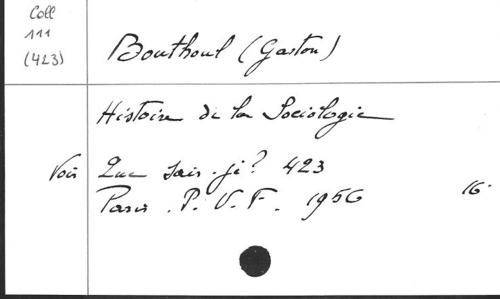 Coll
111
(423)
Bouthoul (Gaston)
Histoire de la Sociologie
Voir Que sais-je? 423
Paris. P. U. F. 1956 16°